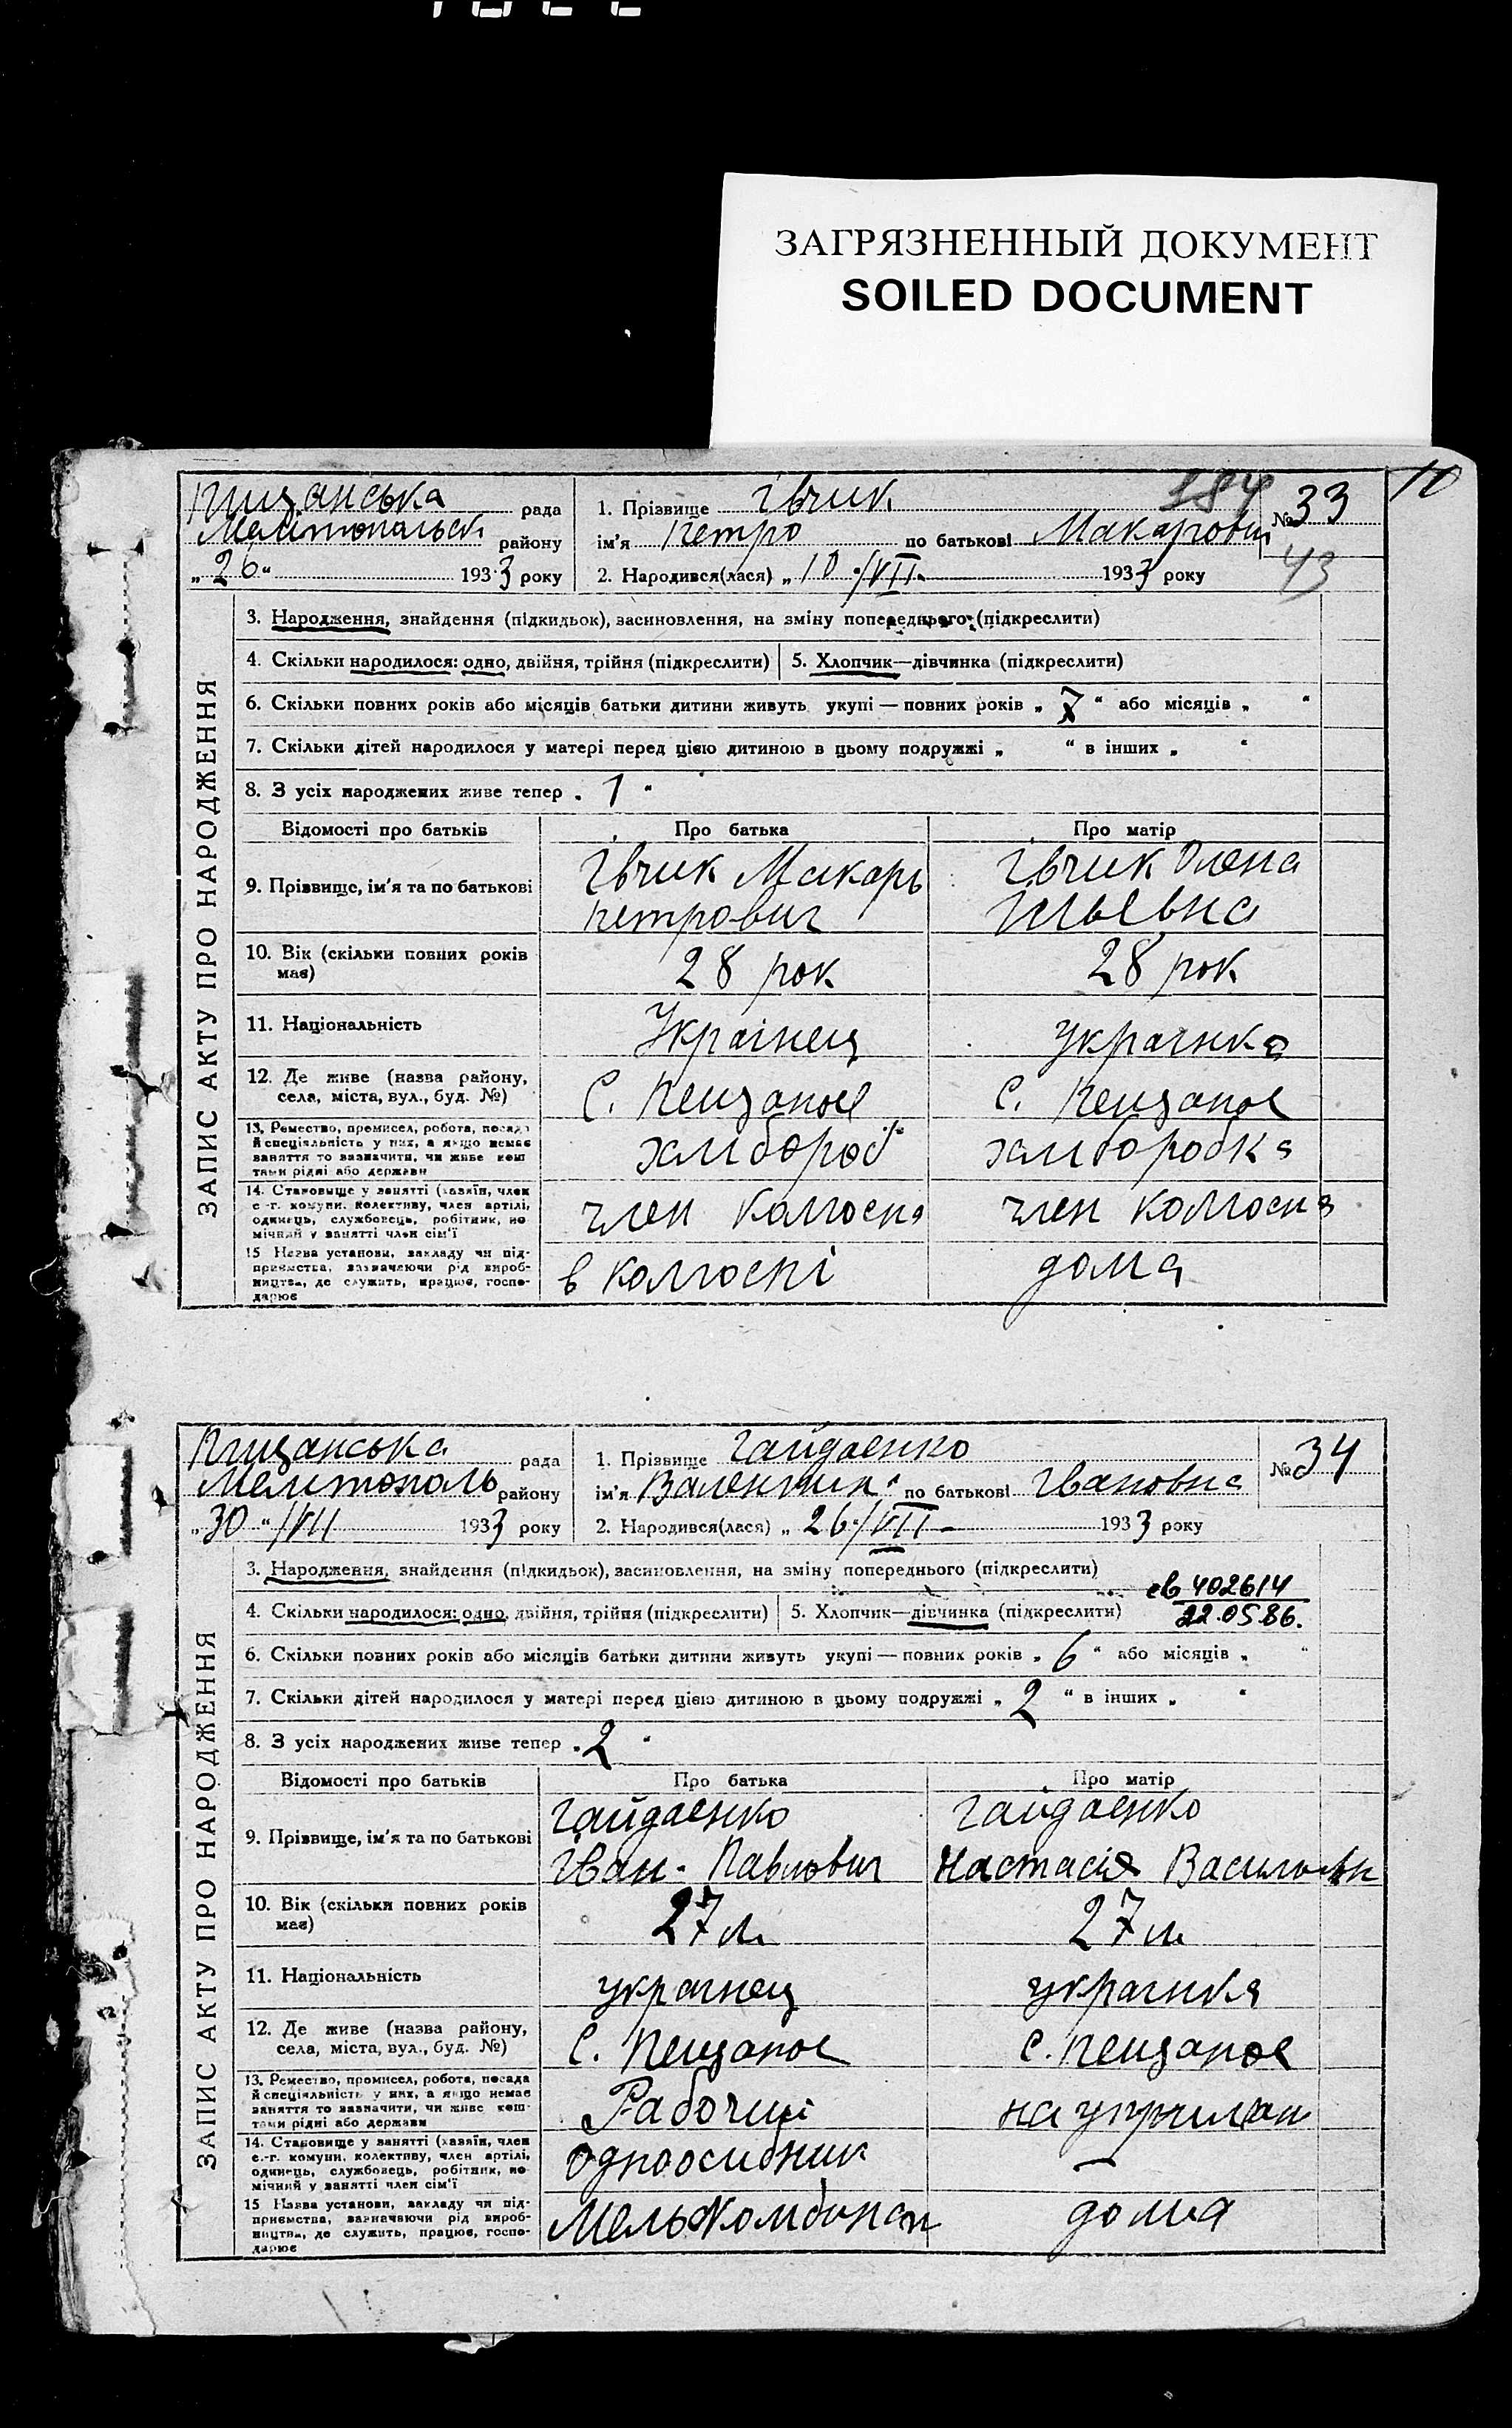 ЗАГРЯЗНЕННЫЙ ДОКУМЕНТ
SOILED DOCUMENT
10
Пищанська рада
Мелитопольск району
„ 26 “ 1933 року
1. Прізвище Івчик
184
№ 33
ім'я Петро по батькові Макарович
43
2. Народився(лася) „ 10 “/VII 1933 року
ЗАПИС АКТУ ПРО НАРОДЖЕННЯ
3. Народження, знайдення (підкидьок), засиновлення, на зміну попереднього (підкреслити)
4. Скільки народилося: одно, двійня, трійня (підкреслити) 5. Хлопчик—дівчинка (підкреслити)
6. Скільки повних років або місяців батьки дитини живуть укупі — повних років „ 7 “ або місяців „ “
7. Скільки дітей народилося у матері перед цією дитиною в цьому подружжі „ “ в інших „ “
8. З усіх народжених живе тепер „ 1 “
Відомості про батьків Про батька Про матір
9. Прізвище, ім'я та по батькові
Івчик Макарь
Петрович
Івчик Олена
Ільевна
10. Вік (скільки повних років має)
28 рок
28 рок
11. Національність
Українец
українка
12. Де живе (назва району,
села, міста, вул., буд. №)
С. Пещаное
С. Пещаное
13. Ремество, промисел, робота, посада
й спеціяльність у них, а якщо немає
заняття то зазначити, чи живе кош
тами рідні або держави
хлибороб
хлиборобка
14. Становище у занятті (хазяїн, член
с.-г. комуни, колективу, член артілі,
одинець, службовець, робітник, по
мічний у занятті член сім'ї
член колгоспа
член колгоспа
15 Назва установи, закладу чи під-
приємства, зазначаючи рід вироб-
ництва, де служить, працює, госпо-
дарює
в колгоспі
дома
Пищанська рада
Мелитополь району
„ 30 “/VII 1933 року
1. Прізвище Гайдаенко
№ 34
ім'я Валентин по батькові Івановна
2. Народився(лася) „ 26 “/VII 1933 року
ЗАПИС АКТУ ПРО НАРОДЖЕННЯ
3. Народження, знайдення (підкидьок), засиновлення, на зміну попереднього (підкреслити)
св 402614
22.05.86.
4. Скільки народилося: одно, двійня, трійня (підкреслити) 5. Хлопчик—дівчинка (підкреслити)
6. Скільки повних років або місяців батьки дитини живуть укупі — повних років „ 6 “ або місяців „ “
7. Скільки дітей народилося у матері перед цією дитиною в цьому подружжі „ 2 “ в інших „ “
8. З усіх народжених живе тепер „ 2 “
Відомості про батьків Про батька Про матір
9. Прізвище, ім'я та по батькові
Гайдаенко
Іван Павлович
Гайдаенко
Настасія Васильевн
10. Вік (скільки повних років має)
27 л
27 л
11. Національність
українец
українка
12. Де живе (назва району,
села, міста, вул., буд. №)
С. Пещаное
С. Пещаное
13. Ремество, промисел, робота, посада
й спеціяльність у них, а якщо немає
заняття то зазначити, чи живе кош-
тами рідні або держави
Рабочий
14. Становище у занятті (хазяїн, член
с.-г. комуни, колективу, член артілі,
одинець, службовець, робітник, по
мічний у занятті член сім'ї
одноосибник
—
15 Назва установи, закладу чи під-
приємства, зазначаючи рід вироб-
ництва, де служить, працює, госпо-
дарює
Мелькомбинат
дома